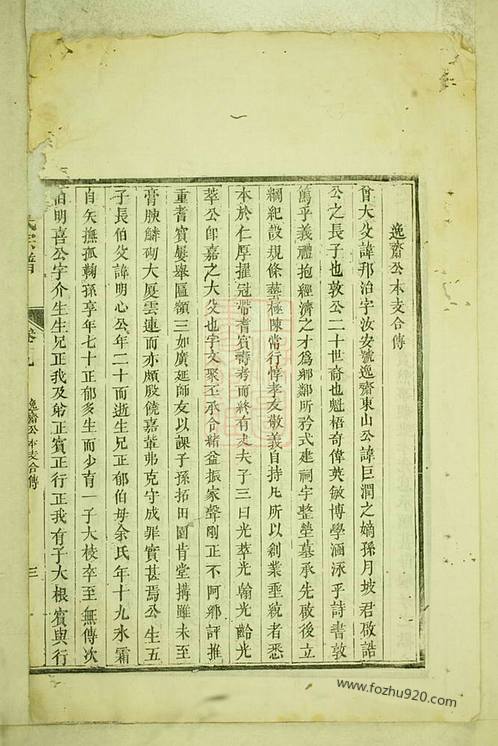 逸齋公本支合傳
曾大父諱邦治字汝安號逸齋東山公諱巨澗之嫡孫月坡君啟誥
公之長子也敦公二十世裔也魁梧奇偉英敏博學涵泳乎詩書敦
篤乎義禮抱經濟之才為鄉鄰所矜式建祠宇整塋墓承先啟後立
綱紀設規條藝極陳常行惇孝友敬義自持凡所以創業垂統者悉
本於仁厚擢冠帶耆賓壽考而終有丈夫子三曰光莘光翰光齡光
莘公即嘉之大父也字文聚丕承令緒益振家聲剛正不阿鄉評推
重耆賓屢舉區領三如廣延師友以課子孫拓田園肯堂搆雖未至
膏腴麟砌大厦雲連而亦頗股饒嘉輩弗克守成罪實甚焉公生五
子長伯父諱明心公年二十而逝生兄正郁伯母余氏年十九氷霜
自矢撫孤鞠孫享年七十正郁多生而少育一子大稜卒至無傳次
伯明喜公字介生生兄正我及弟正賓正行正我有子大根賓與行
氏宗譜
卷
九
逸齋公本支合傳
三
www.fozhu920.com